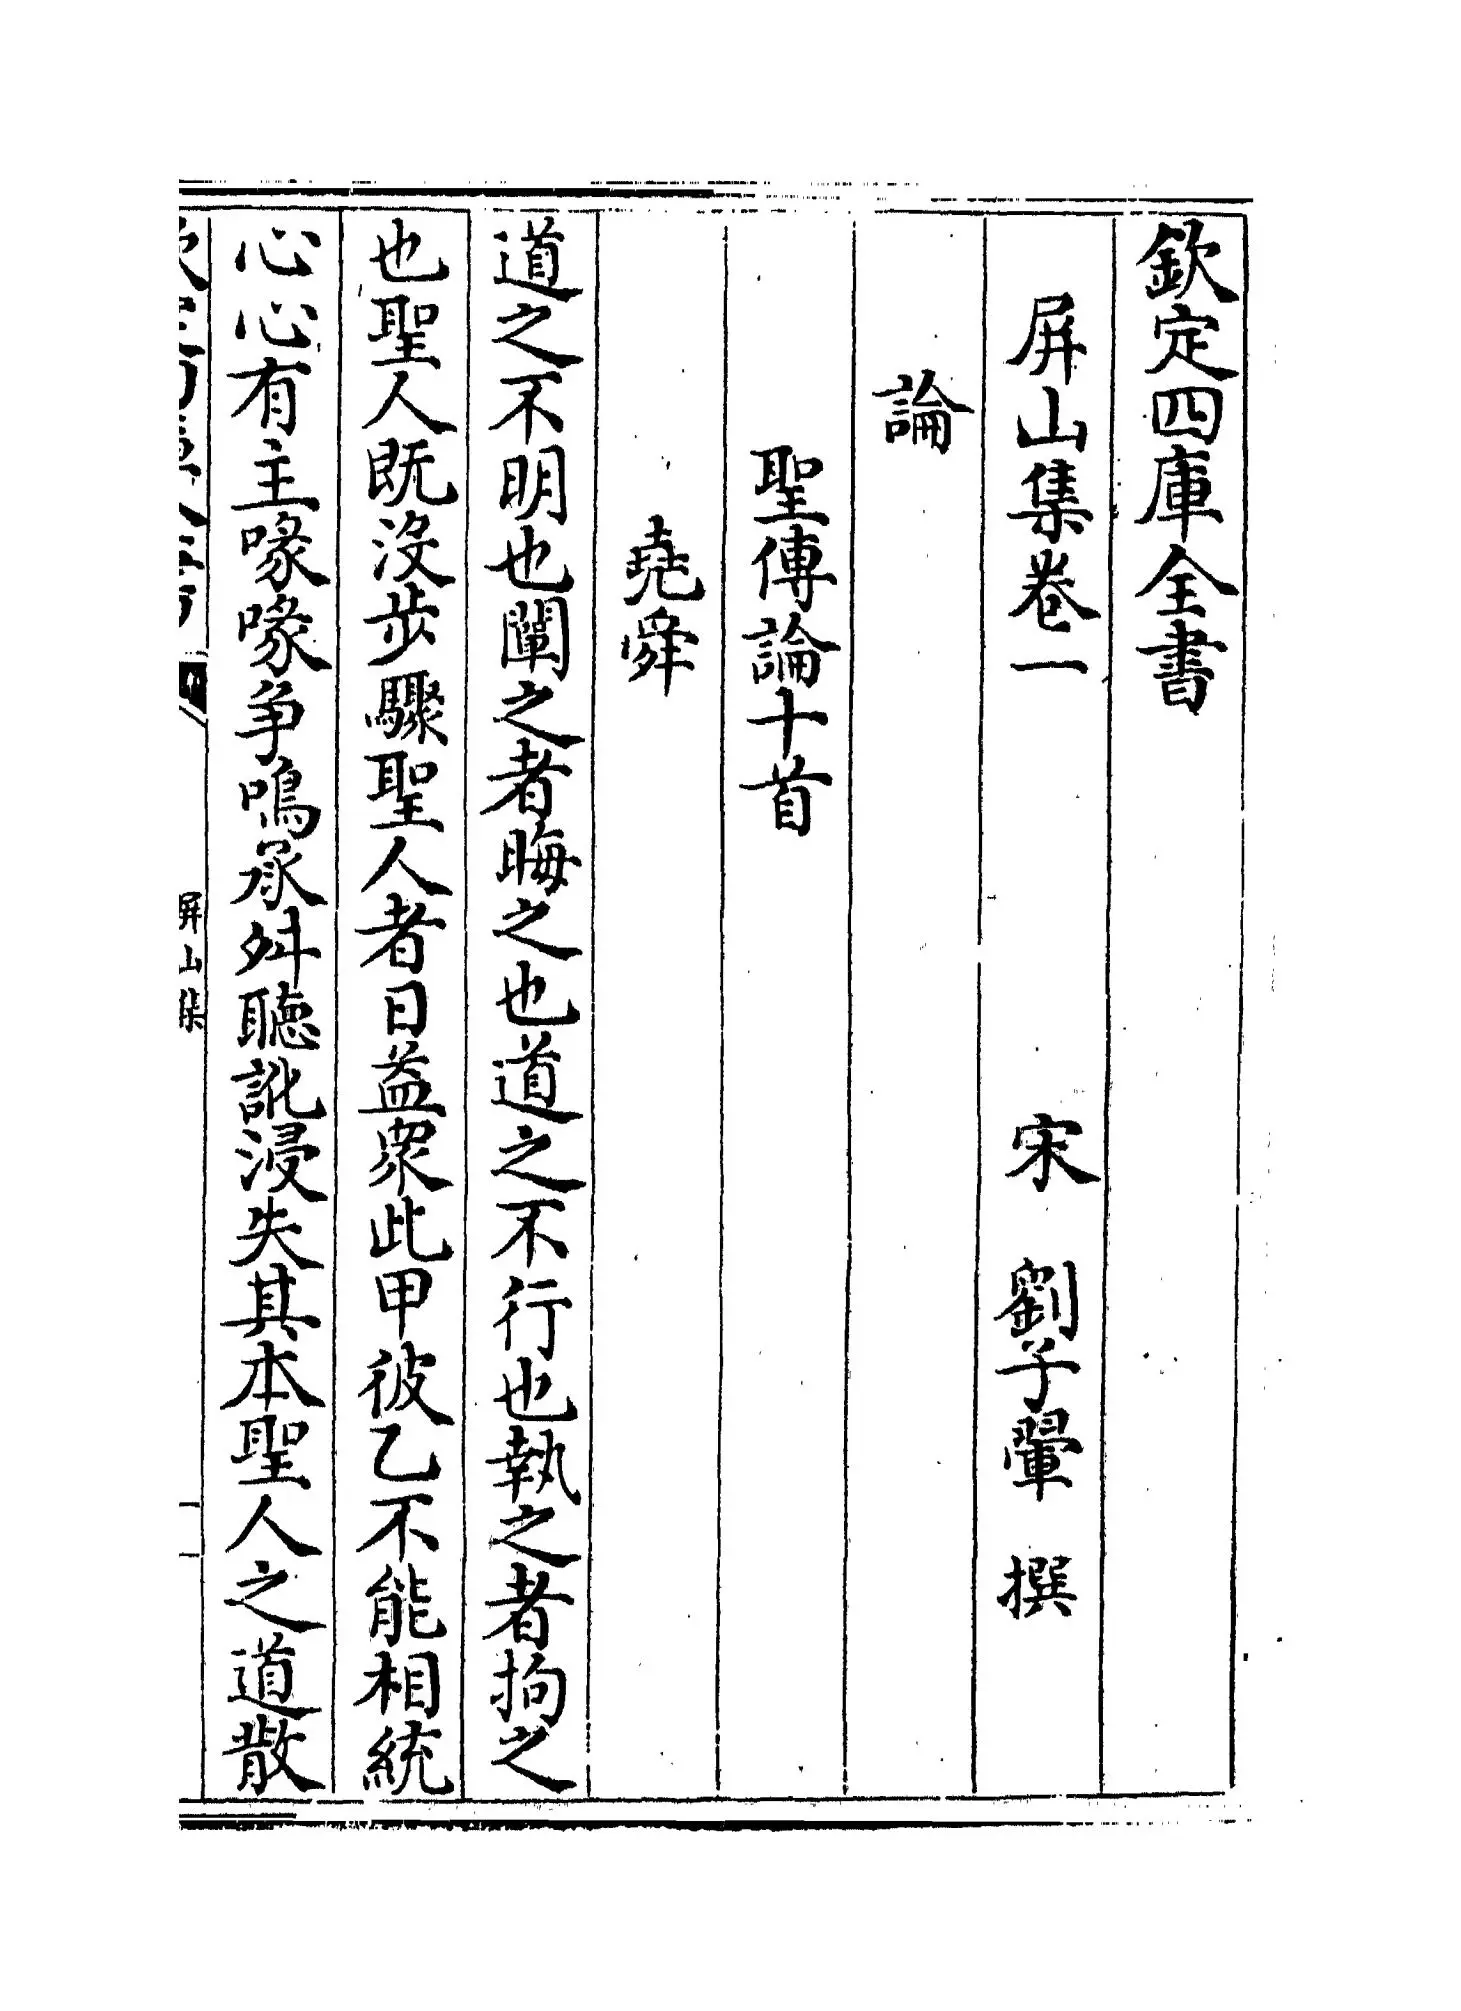 欽定四庫全書
屏山集卷一 宋 劉子翬 撰
論
聖傳論十首
堯舜
道之不明也闡之者晦之也道之不行也執之者拘之
也聖人既沒步驟聖人者日益衆此甲彼乙不能相統
心心有主喙喙争鳴承舛聽訛浸失其本聖人之道散
屏山集
一